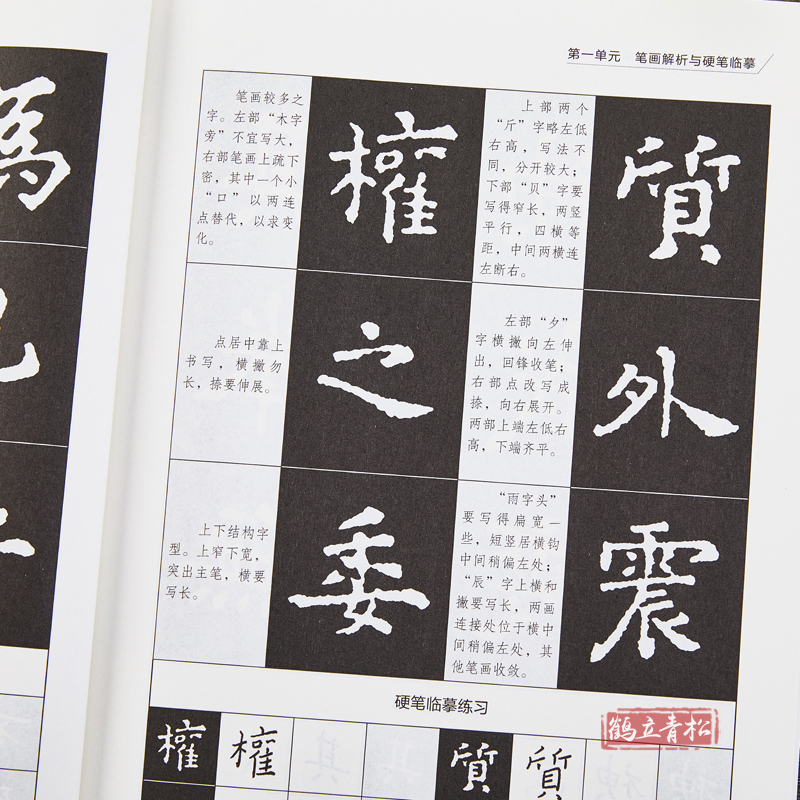 第一单元 笔画解析与硬笔临摹
笔画较多之
字。左部“木字
旁”不宜写大，
右部笔画上疏下
密，其中一个小
“口”以两连
点替代，以求变
化。
權
上部两个
“斤”字略左低
右高，写法不
同，分开较大；
下部“贝”字要
写得窄长，两竖
平行，四横等
距，中间两横连
左断右。
質
点居中靠上
书写，横撇勿
长，捺要伸展。
之
左部“夕”
字横撇向左伸
出，回锋收笔；
右部点改写成
捺，向右展开。
两部上端左低右
高，下端齐平。
外
上下结构字
型。上窄下宽，
突出主笔，横要
写长。
委
“雨字头”
要写得扁宽一
些，短竖居横钩
中间稍偏左处；
“辰”字上横和
撇要写长，两画
连接处位于横中
间稍偏左处，其
他笔画收敛。
震
硬笔临摹练习
鹤立青松
權 權 質 質